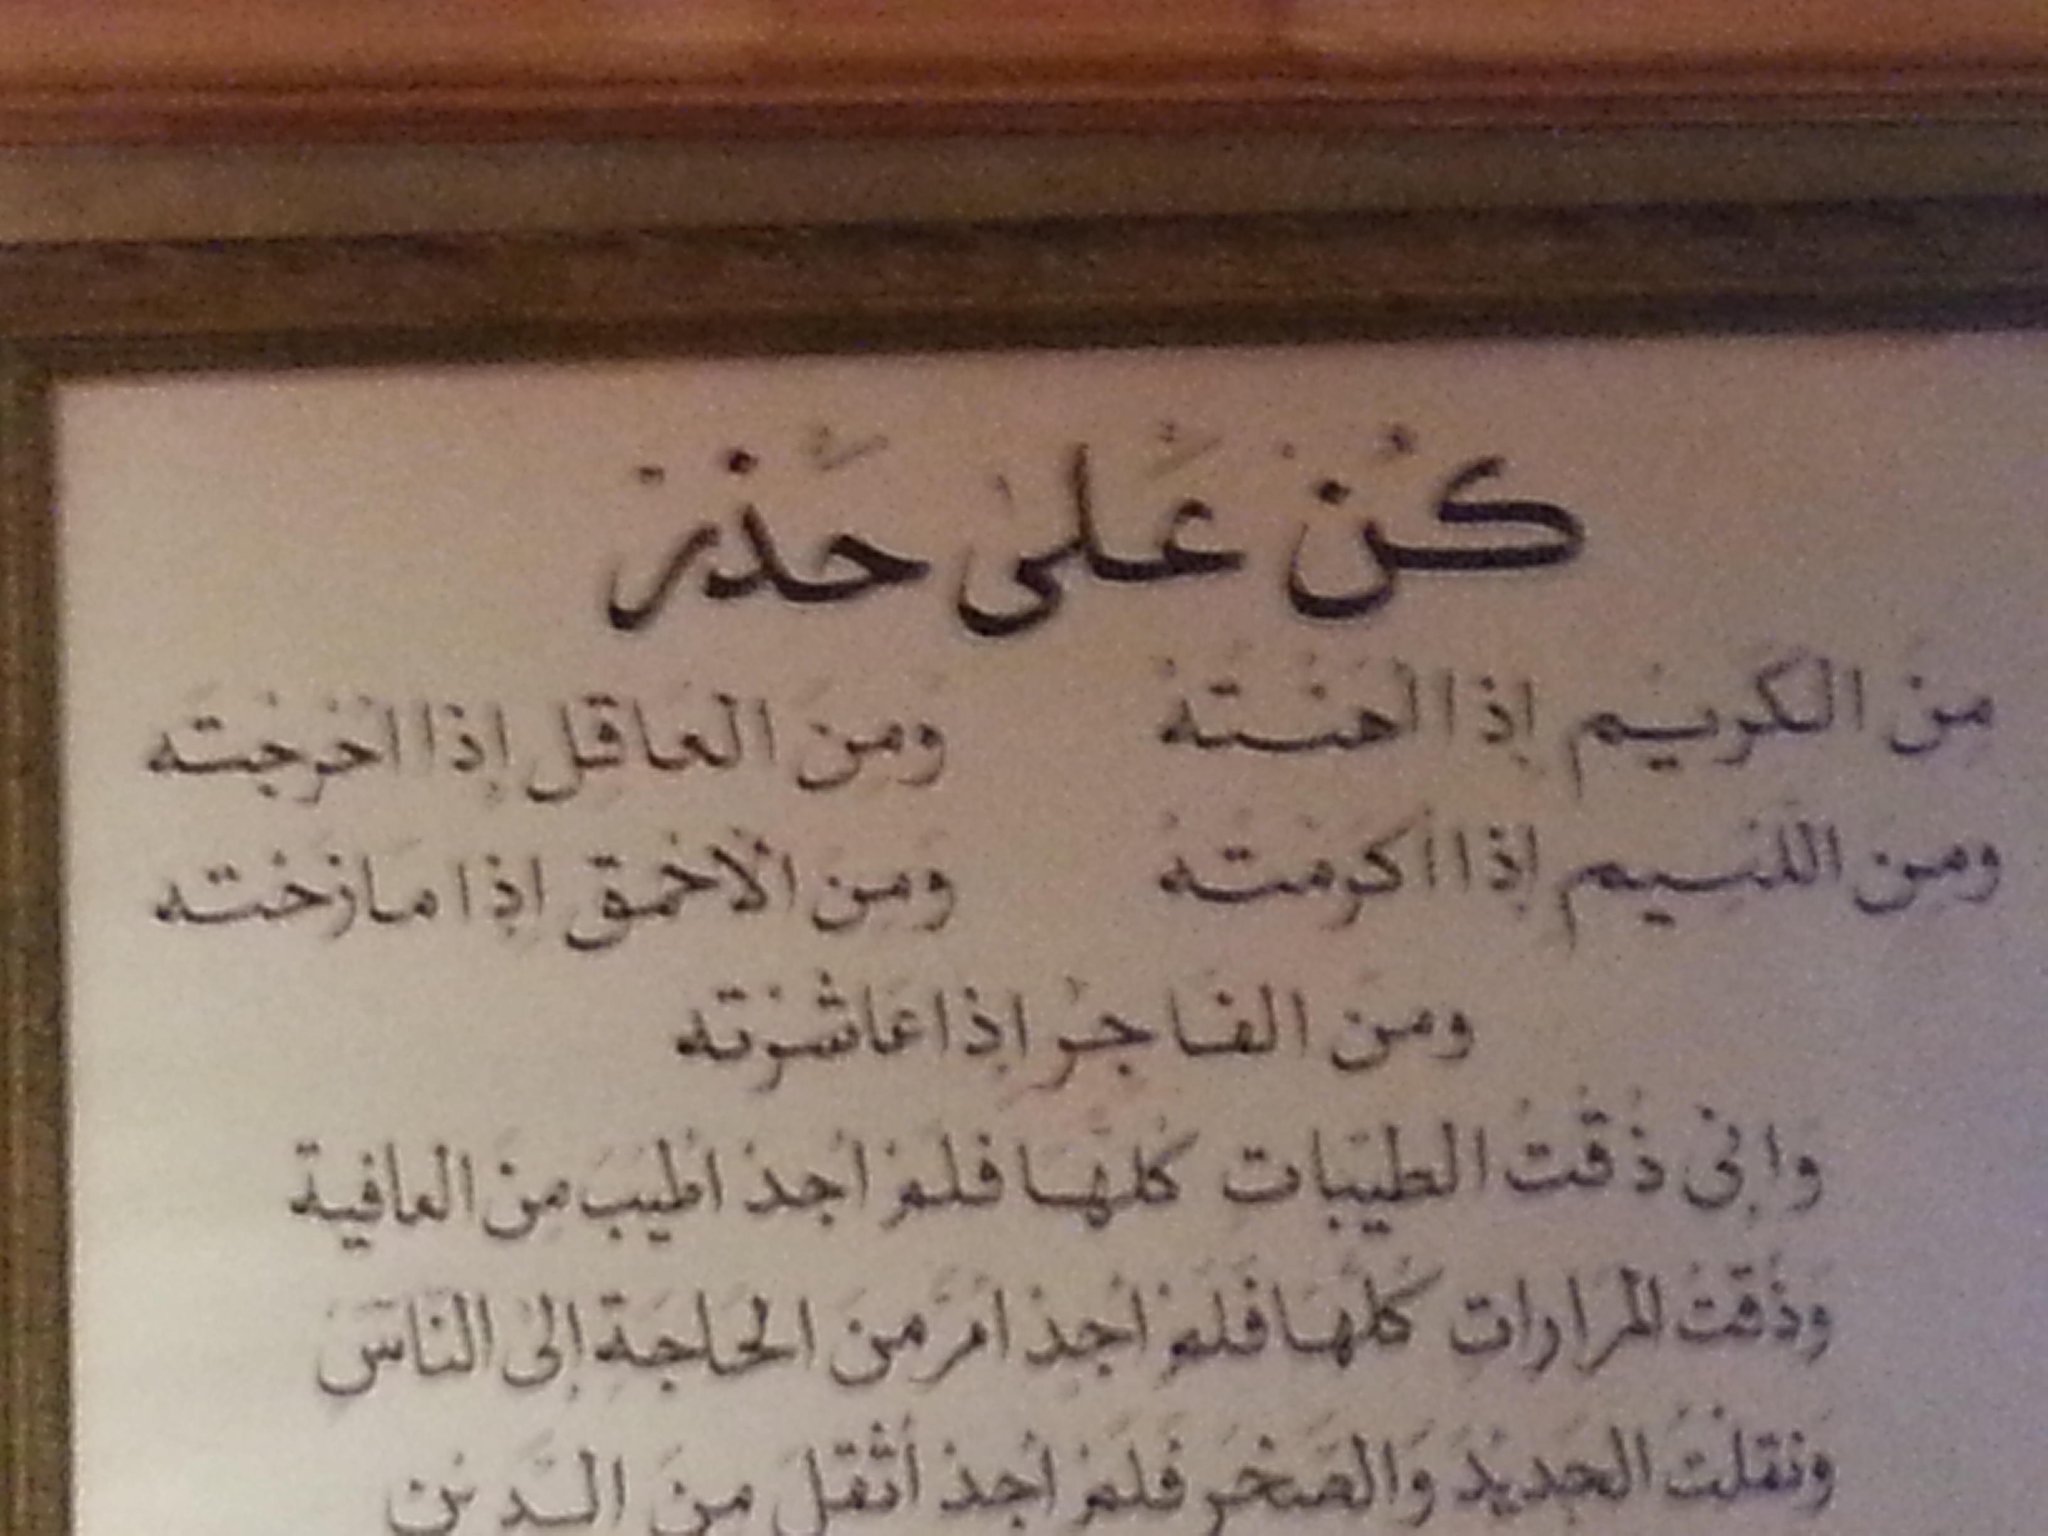 كُنْ عَلَىٰ حَذَرْ
مِنَ الكريم إذا اهنته ومن العاقل إذا احرجته
ومن اللئيم إذا اكرمته ومن الاحمق إذا مازحته
ومن الفاجر إذا عاشرته
وإني ذُقتُ الطيّبات كُلّهَا فَلَمْ أجِدْ اطيَبَ مِنَ العافية
وَذُقتُ المرارات كُلّهَا فَلَمْ أجِدْ امَرّ مِنَ الحَاجَة إلىٰ النّاسْ
وَنقلتُ الحَديدَ وَالصّخرَ فَلَمْ أجِدْ أثقلَ مِنَ الدّيْن